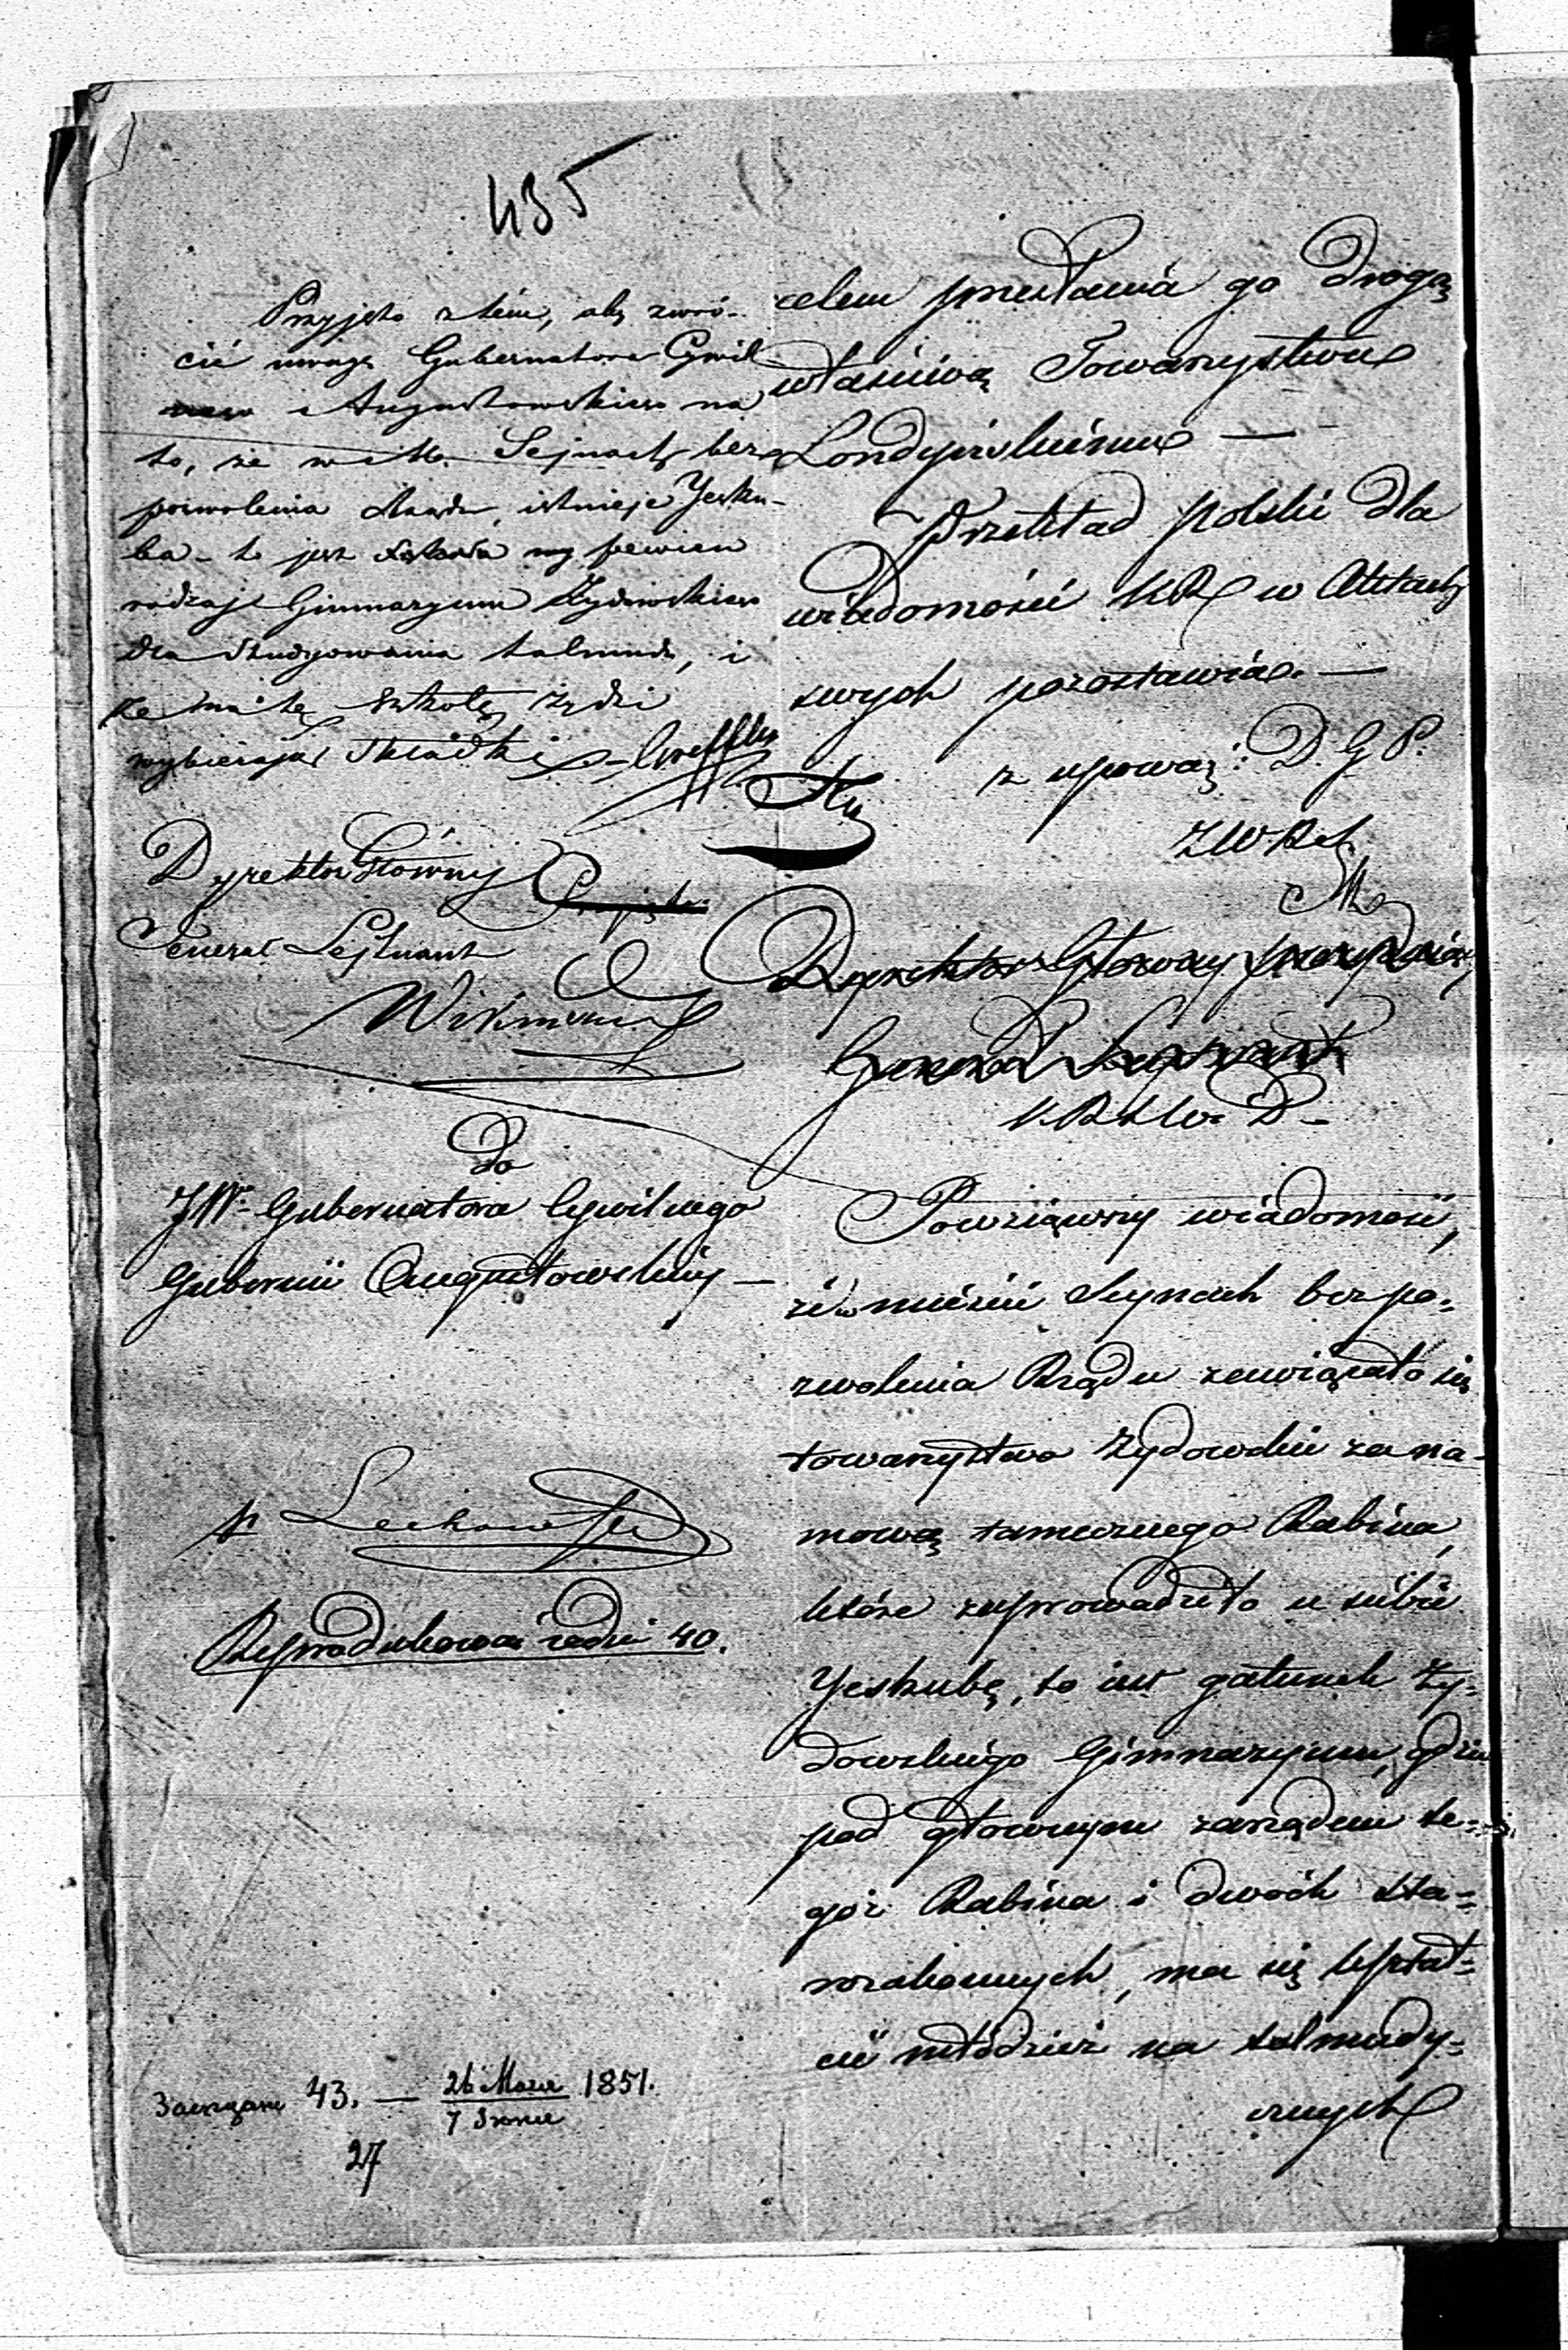 435
Przyjęto z tém, aby zwró-
cić uwagę Gubernatora Cywil
nego Augustowskiego na
to, że w M. Sejnach bez
pozwolenia Rządu, istnieje Jesku-
ba - to jest pewien
rodzaj Gimnazyum Żydowskiego
dla studyowania talmudu, i
że na tę szkołę żydzi
wybierają składki
Dyrektor Główny
Generał Lejtnant
Wikiński
Do
JWo Gubernatora Cywilnego
Gubernii Augustowskiéj —
Lechowski
Reprodukować redni 40.
43. — 26 Maja / 7 1851.
27
celem przesłania go drogą
właściwą Towarzystwu
Londyńskiému —
Przekład polski dla
wiadomości KR w Aktach
swych pozostawia. —
z upoważ: D. G P.
Dyrektor Główny Prezydujący
Generał Lejtnant
K. R S W. D —
Powziąwszy wiadomość,
że w mieście Seynach bez po-
zwolenia Rządu zawiązało się
towarzystwo Żydowskie za na-
mową tamecznego Rabina,
które zaprowadziło u siebie
Yeskubę, to iest gatunek Ży-
dowskiego Gimnazyum, gdzie
pod głównym zarządem te-
goż Rabina i dwóch sta-
rozakonnych, ma się kształ-
cić młódzież na talmudy-
cznych